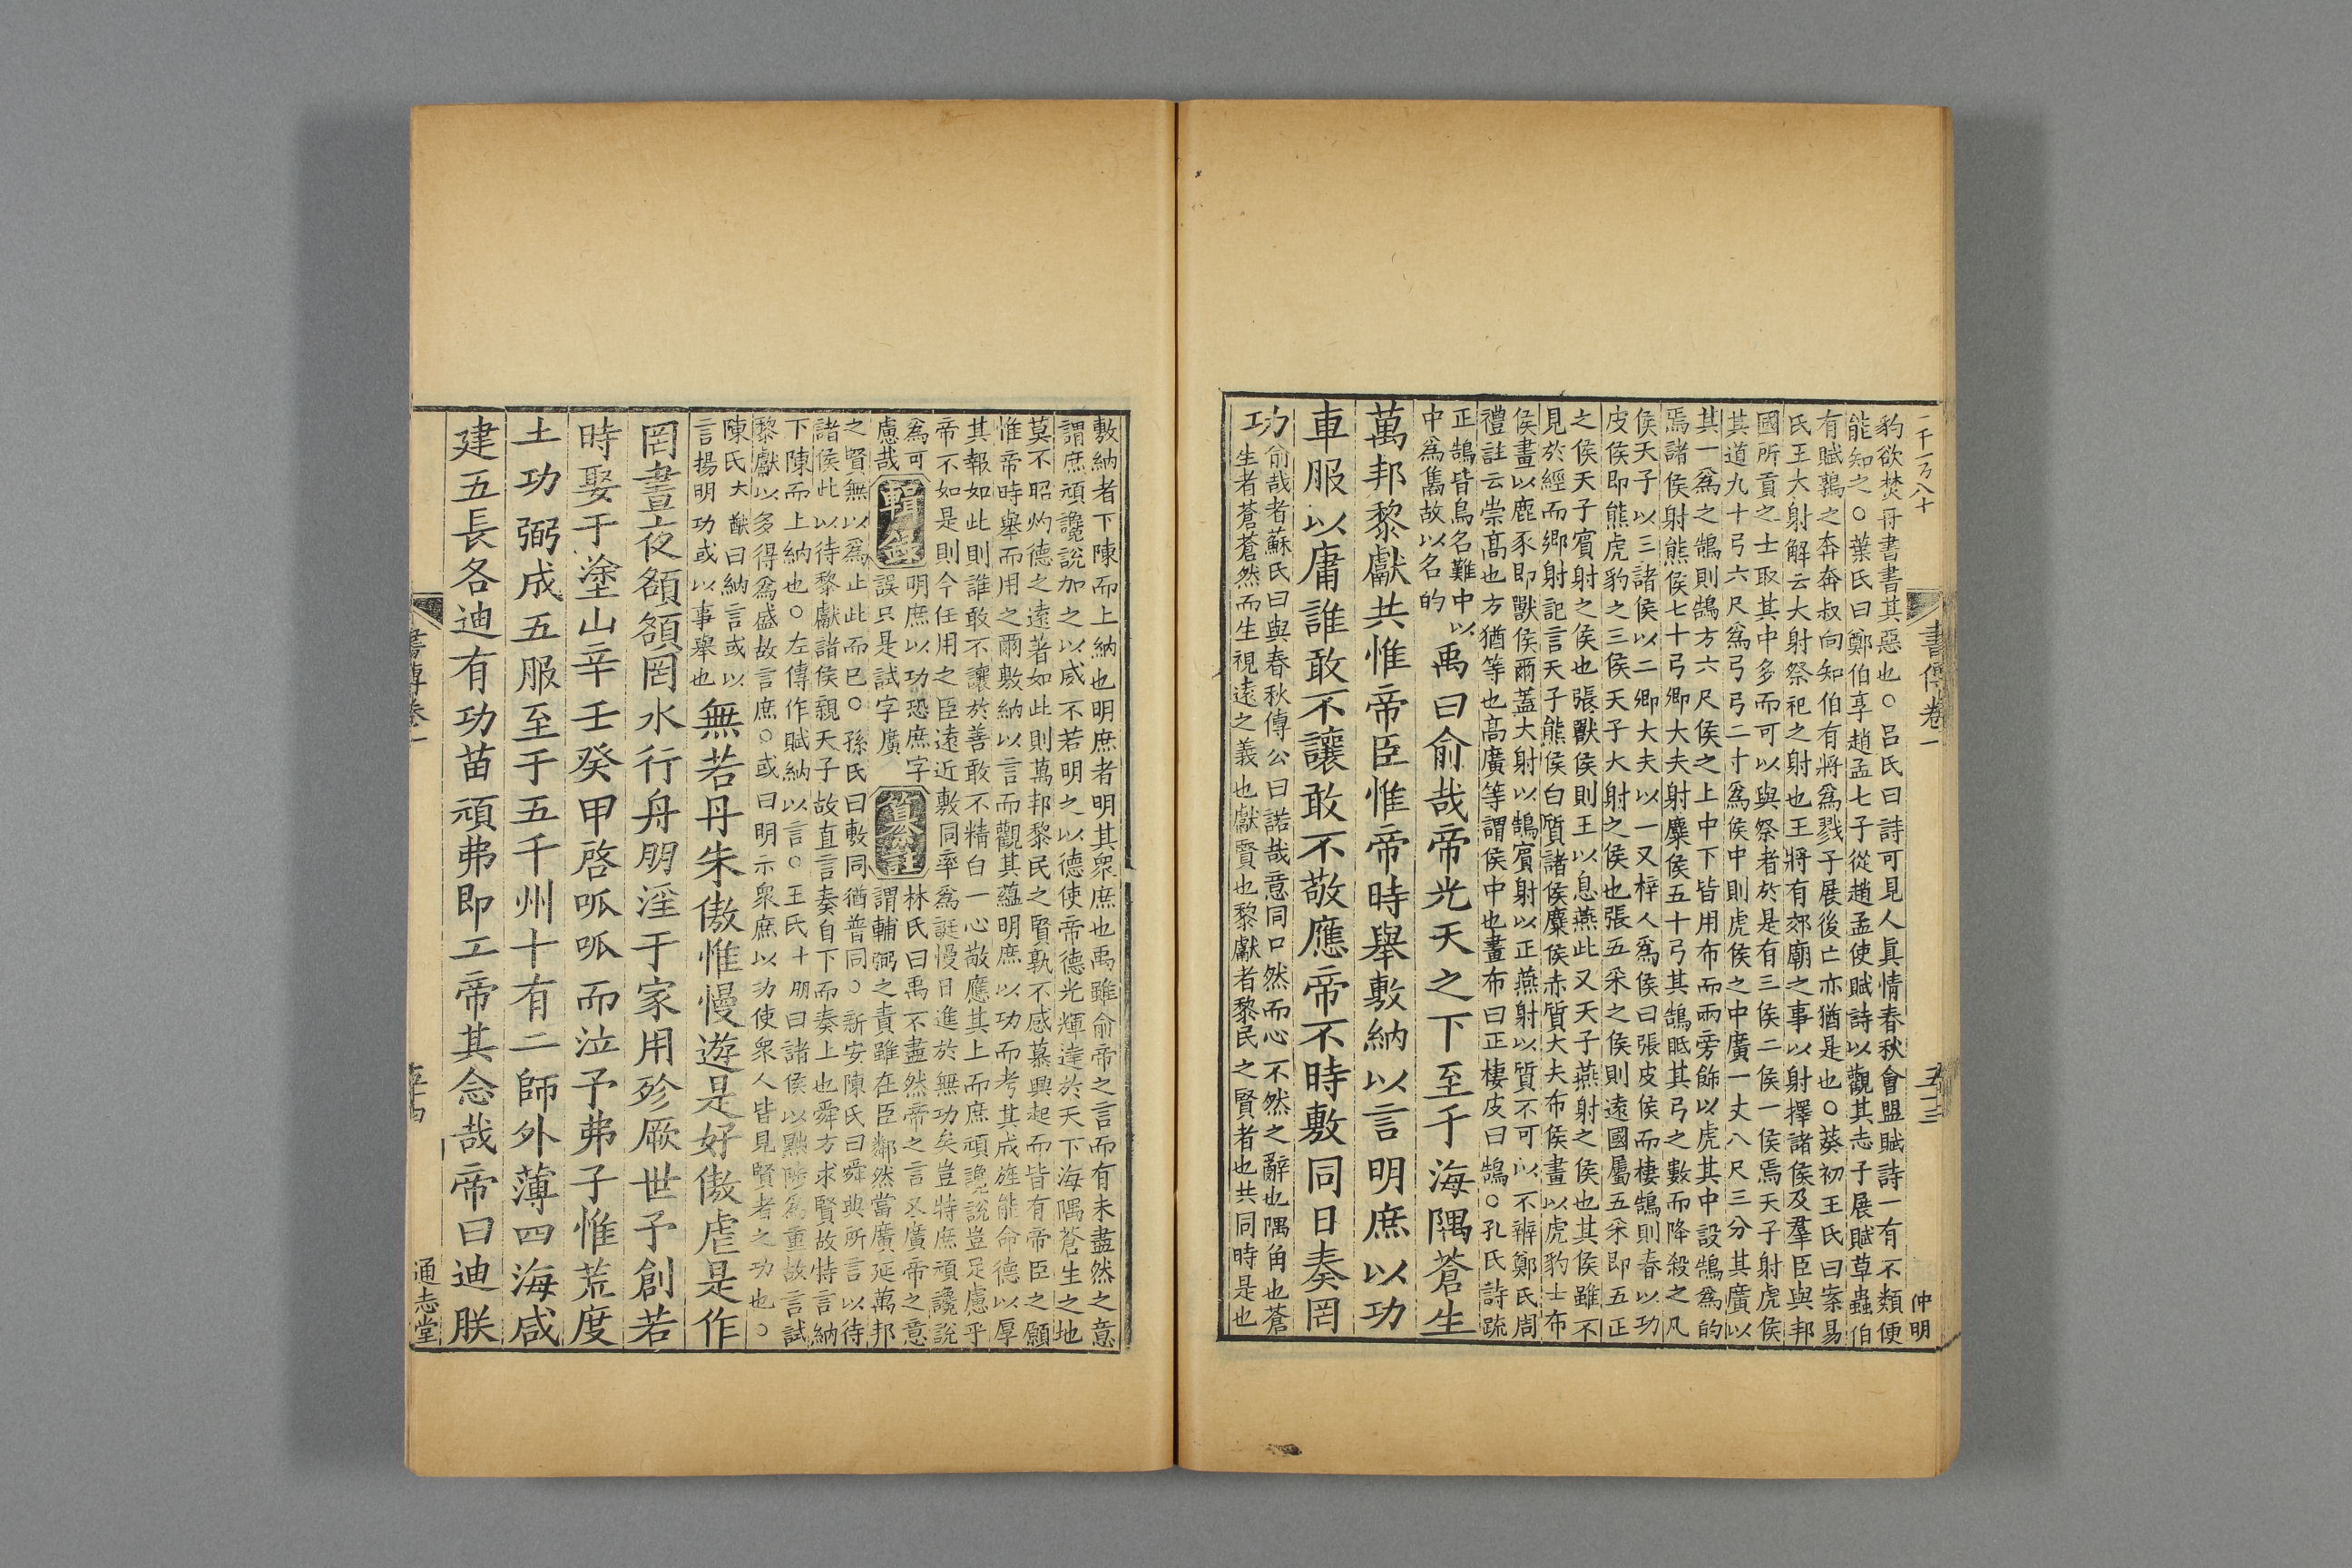 二千一百八十
書傳卷一
五十三
仲明
豹欲焚丹書書其惡也○呂氏曰詩可見人眞情春秋會盟賦詩一有不類便
能知之○葉氏曰鄭伯享趙孟七子從趙孟使賦詩以觀其志子展賦草蟲伯
有賦鶉之奔奔叔向知伯有將爲戮子展後亡亦猶是也○葵初王氏曰案易
氏王大射解云大射祭祀之射也王將有郊廟之事以射擇諸侯及羣臣與邦
國所貢之士取其中多而可以與祭者於是有三侯二侯一侯焉天子射虎侯
其道九十弓六尺爲弓弓二寸爲侯中則虎侯之中廣一丈八尺三分其廣以
其一爲之鵠則鵠方六尺侯之上中下皆用布而兩旁飾以虎其中設鵠爲的
焉諸侯射熊侯七十弓卿大夫射麋侯五十弓其鵠眂其弓之數而降殺之凡
侯天子以三諸侯以二卿大夫以一又梓人爲侯曰張皮侯而棲鵠則春以功
皮侯即熊虎豹之三侯天子大射之侯也張五采之侯則遠國屬五采即五正
之侯天子賓射之侯也張獸侯則王以息燕此又天子燕射之侯也其侯雖不
見於經而鄉射記言天子熊侯白質諸侯麋侯赤質大夫布侯畫以虎豹士布
侯畫以鹿豕即獸侯爾蓋大射以鵠賓射以正燕射以質不可以不辨鄭氏周
禮註云崇高也方猶等也高廣等謂侯中也畫布曰正棲皮曰鵠○孔氏詩疏
正鵠皆鳥名難中以
中爲雋故以名的
禹曰俞哉帝光天之下至于海隅蒼生
萬邦黎獻共惟帝臣惟帝時舉敷納以言明庶以功
車服以庸誰敢不讓敢不敬應帝不時敷同日奏罔
功
俞哉者蘇氏曰與春秋傳公曰諾哉意同口然而心不然之辭也隅角也蒼
生者蒼蒼然而生視遠之義也獻賢也黎獻者黎民之賢者也共同時是也
敷納者下陳而上納也明庶者明其衆庶也禹雖俞帝之言而有未盡然之意
謂庶頑讒說加之以威不若明之以德使帝德光輝達於天下海隅蒼生之地
莫不昭灼德之遠著如此則萬邦黎民之賢孰不感慕興起而皆有帝臣之願
惟帝時舉而用之爾敷納以言而觀其蘊明庶以功而考其成旌能命德以厚
其報如此則誰敢不讓於善敢不精白一心敬應其上而庶頑讒說豈足慮乎
帝不如是則今任用之臣遠近敷同率爲誕慢日進於無功矣豈特庶頑讒說
爲可
慮哉
輯錄
明庶以功恐庶字
誤只是試字廣
纂註
林氏曰禹不盡然帝之言又廣帝之意
謂輔弼之責雖在臣鄰然當廣延萬邦
之賢無以爲止此而已○孫氏曰敷同猶普同○新安陳氏曰舜典所言以待
諸侯此以待黎獻諸侯親天子故直言奏自下而奏上也舜方求賢故特言納
下陳而上納也○左傳作賦納以言○王氏十朋曰諸侯以黜陟爲重故言試
黎獻以多得爲盛故言庶○或曰明示衆庶以功使衆人皆見賢者之功也○
陳氏大猷曰納言或以
言揚明功或以事舉也
無若丹朱傲惟慢遊是好傲虐是作
罔晝夜頟頟罔水行舟朋淫于家用殄厥世予創若
時娶于塗山辛壬癸甲啓呱呱而泣予弗子惟荒度
土功弼成五服至于五千州十有二師外薄四海咸
建五長各迪有功苗頑弗即工帝其念哉帝曰迪朕
書傳卷一
通志堂